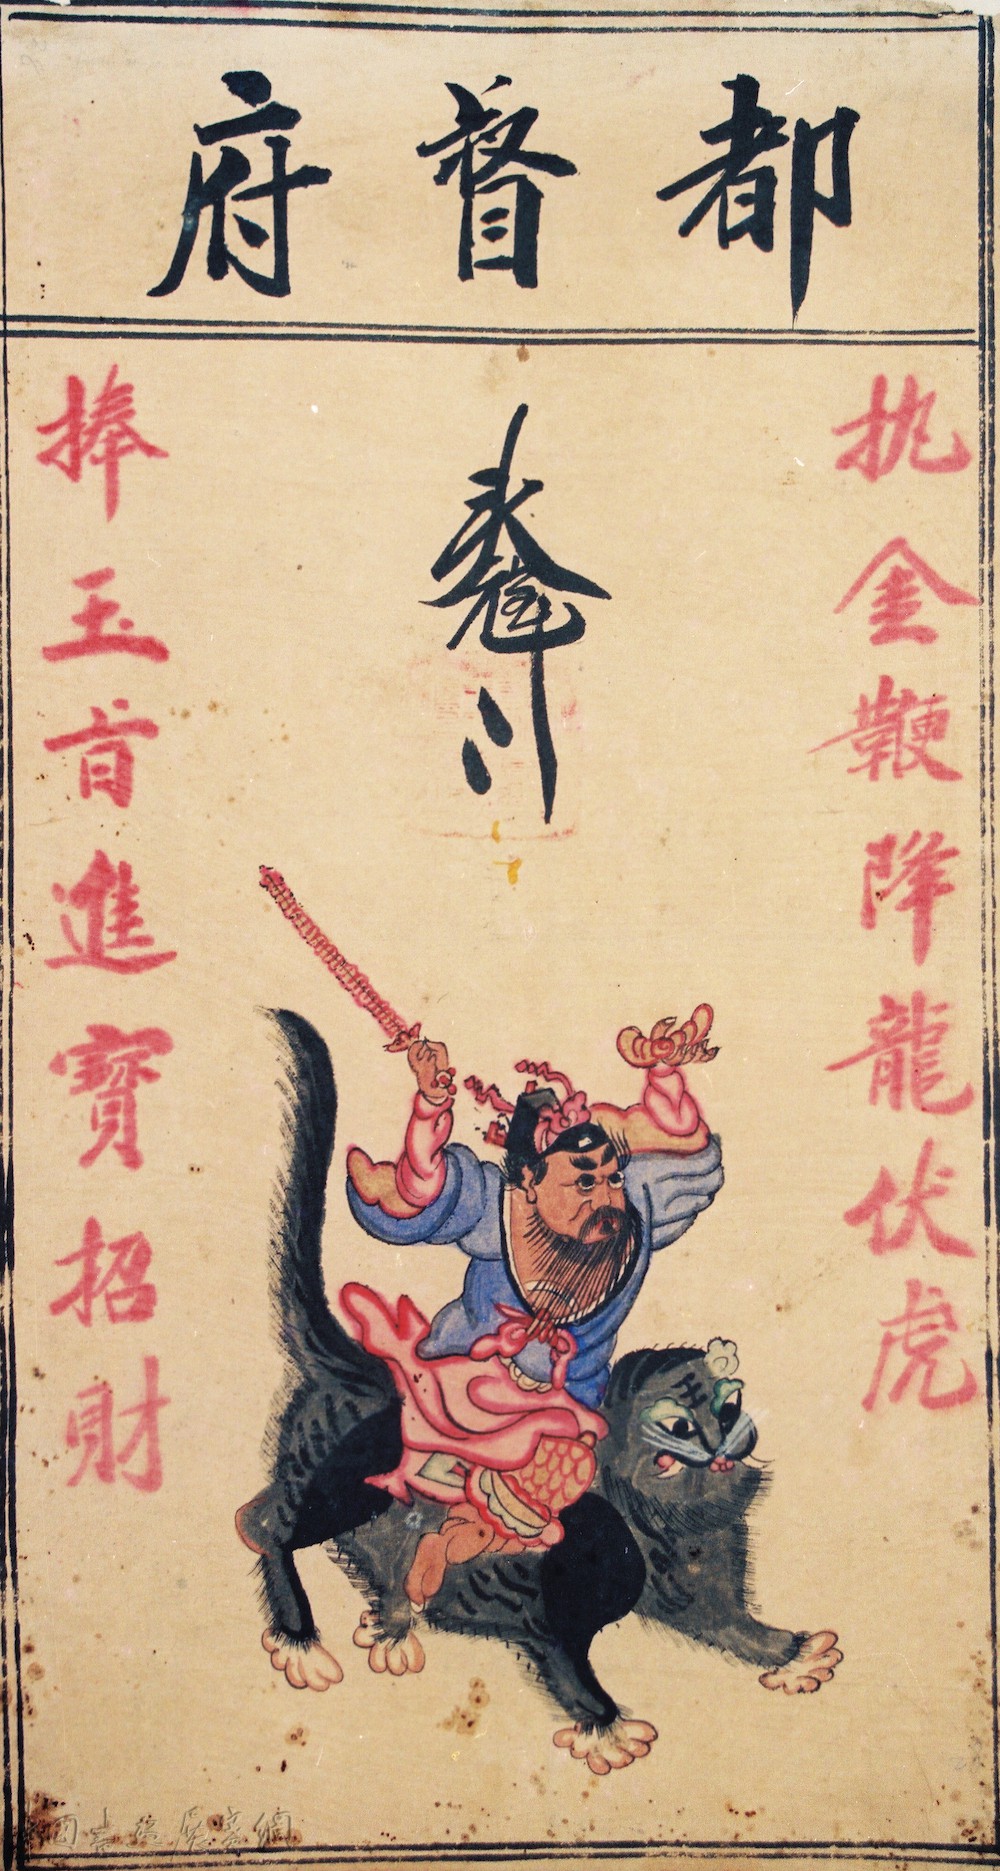 都督府
执金鞭降龍伏虎
捧玉首進寶招財